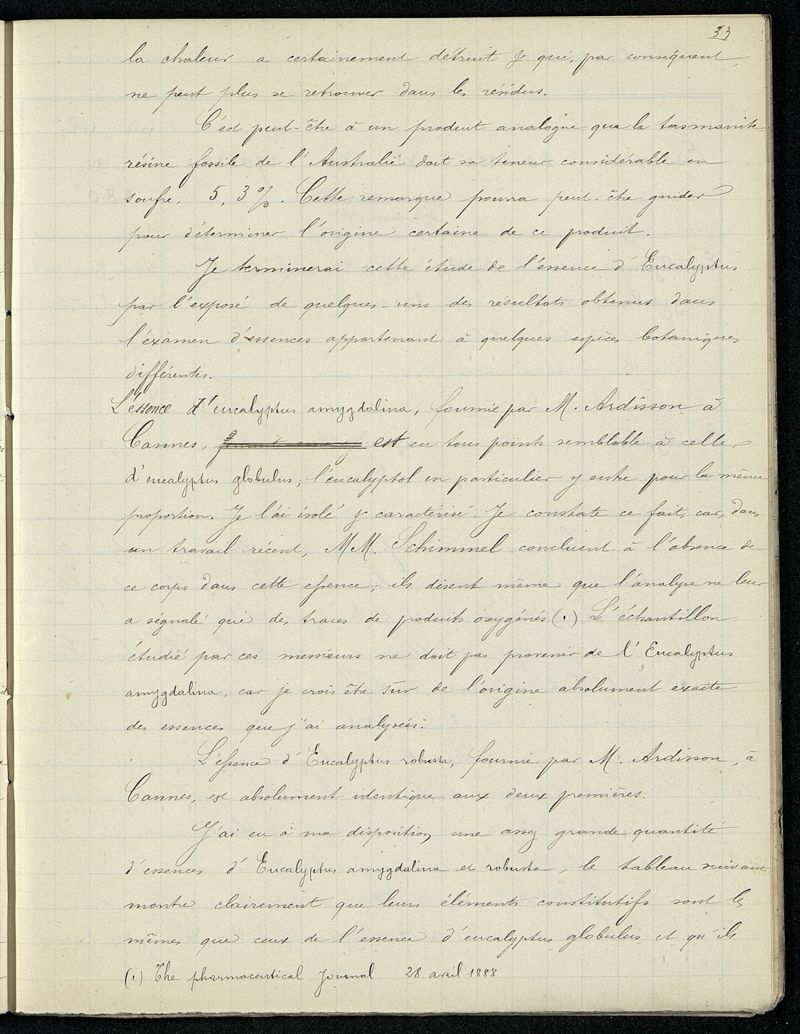 33
la chaleur a certainement détruit & qui, par conséquent,
ne peut plus se retrouver dans les résidus.
C'est peut-être à un produit analogue que la tasmanite
résine fossile de l'Australie doit sa teneur considérable en
soufre. 5,3%. Cette remarque pourra peut-être guider
pour déterminer l'origine certaine de ce produit.
Je terminerai cette étude de l'essence d'Eucalyptus
par l'exposé de quelques-uns des résultats obtenus dans
l'examen d'essences appartenant à quelques espèces botaniques
différentes.
L'essence d'eucalyptus amygdalina, fournie par M. Ardisson à
Cannes, est en tous points semblable à celle
d'eucalyptus globulus; l'eucalyptol en particulier y entre pour la même
proportion. Je l'ai isolé & caractérisé. Je constate ce fait, car, dans
un travail récent, MM. Schimmel concluent à l'absence de
ce corps dans cette essence; ils disent même que l'analyse ne leur
a signalé que des traces de produits oxygénés. (1) L'échantillon
étudié par ces messieurs ne doit pas provenir de l'Eucalyptus
amygdalina, car je crois être sûr de l'origine absolument exacte
des essences que j'ai analysées.
L'essence d'Eucalyptus robusta, fournie par M. Ardisson, à
Cannes, est absolument identique aux deux premières.
J'ai eu à ma disposition, une assez grande quantité
d'essences d'Eucalyptus amygdalina et robusta, le tableau suivant
montre clairement que leurs éléments constitutifs sont les
mêmes que ceux de l'essence d'eucalyptus globulus et qu'ils
(1) The pharmaceutical Journal 28 avril 1888